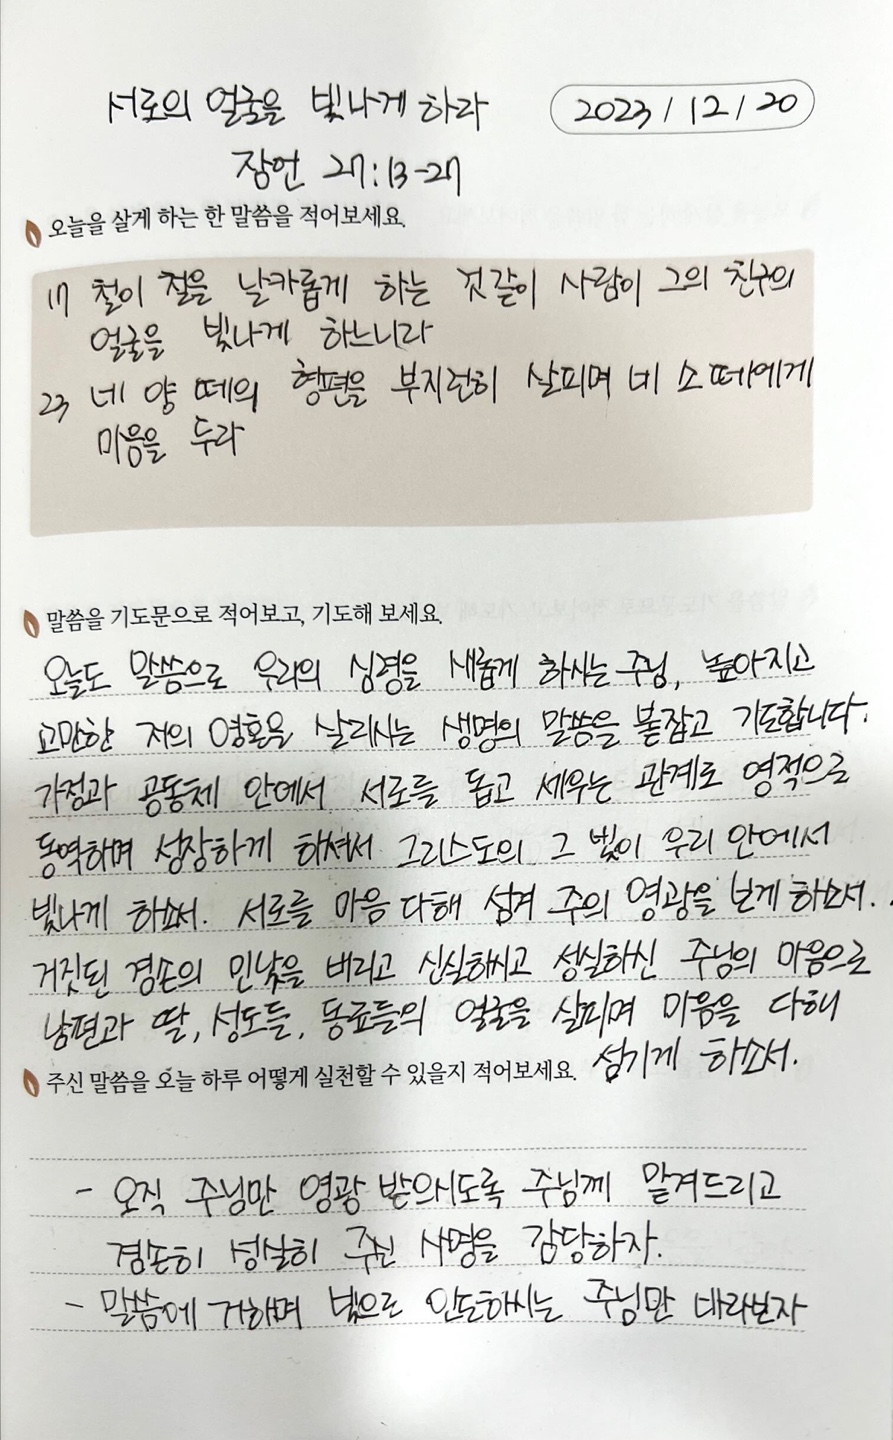 서로의 얼굴을 빛나게 하라
2023/12/20
잠언 27:13-27
오늘을 살게 하는 한 말씀을 적어보세요.
17 철이 철을 날카롭게 하는 것 같이 사람이 그의 친구의
얼굴을 빛나게 하느니라
23 네 양 떼의 형편을 부지런히 살피며 네 소 떼에게
마음을 두라
말씀을 기도문으로 적어보고, 기도해 보세요.
오늘도 말씀으로 우리의 심령을 새롭게 하시는 주님, 높아지고
교만한 저의 영혼을 살리시는 생명의 말씀을 붙잡고 기도합니다.
가정과 공동체 안에서 서로를 돕고 세우는 관계로 영적으로
동역하며 성장하게 하셔서 그리스도의 그 빛이 우리 안에서
빛나게 하소서. 서로를 마음 다해 섬겨 주의 영광을 보게 하소서.
거짓된 겸손의 민낯을 버리고 신실하시고 성실하신 주님의 마음으로
남편과 딸, 성도들, 동료들의 얼굴을 살피며 마음을 다해
섬기게 하소서.
주신 말씀을 오늘 하루 어떻게 실천할 수 있을지 적어보세요.
- 오직 주님만 영광 받으시도록 주님께 맡겨드리고
겸손히 성실히 주신 사명을 감당하자.
- 말씀에 거하며 빛으로 인도하시는 주님만 바라보자